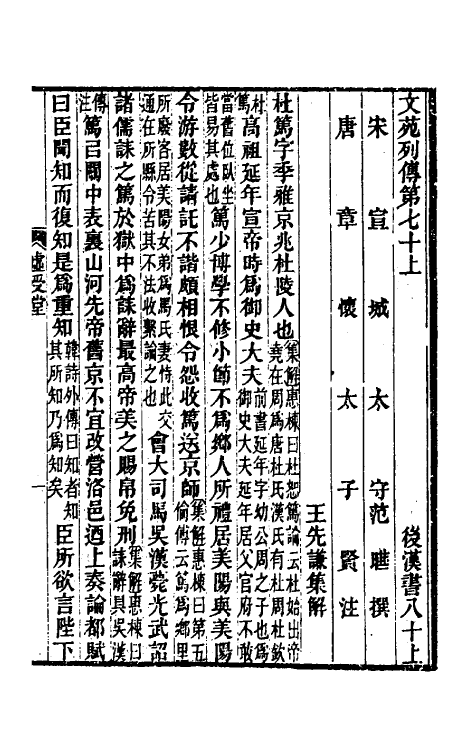 文苑列傳第七十上　後漢書八十上
宋宣城太守范曄撰
唐章懷太子賢注
王先謙集解
杜篤字季雅京兆杜陵人也集解惠棟曰杜恕篤論云杜始出帝堯在周爲唐杜氏漢氏有杜周杜欽
杜篤高祖延年宣帝時爲御史大夫前書延年字幼公周之子也爲御史大夫延年居父官府不敢
當舊位臥坐皆易其處也篤少博學不修小節不爲鄉人所禮居美陽與美陽
令游數從請託不諧頗相恨令怨收篤送京師集解惠棟曰第五倫傳云篤爲鄉里
所廢客居美陽女弟爲馬氏妻恃此交通在所縣令苦其不法收繫論之也會大司馬吳漢薨光武詔
諸儒誄之篤於獄中爲誄辭最高帝美之賜帛免刑集解惠棟曰誄辭具吳漢
傳注篤㠯關中表裏山河先帝舊京不宜改營洛邑迺上奏論都賦
曰臣聞知而復知是爲重知韓詩外傳曰知者知其所知乃爲知矣臣所欲言陛下
虛受堂
一